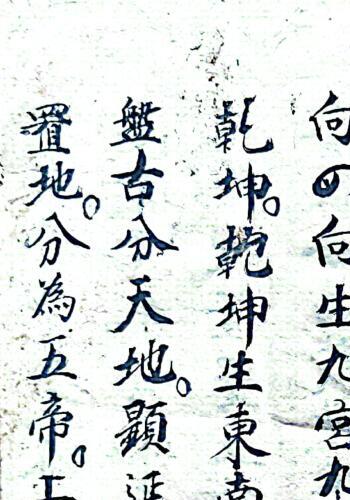 向の向生九宮九
乾坤。乾坤生東南
盤古分天地。顕
置地。分為五帝。